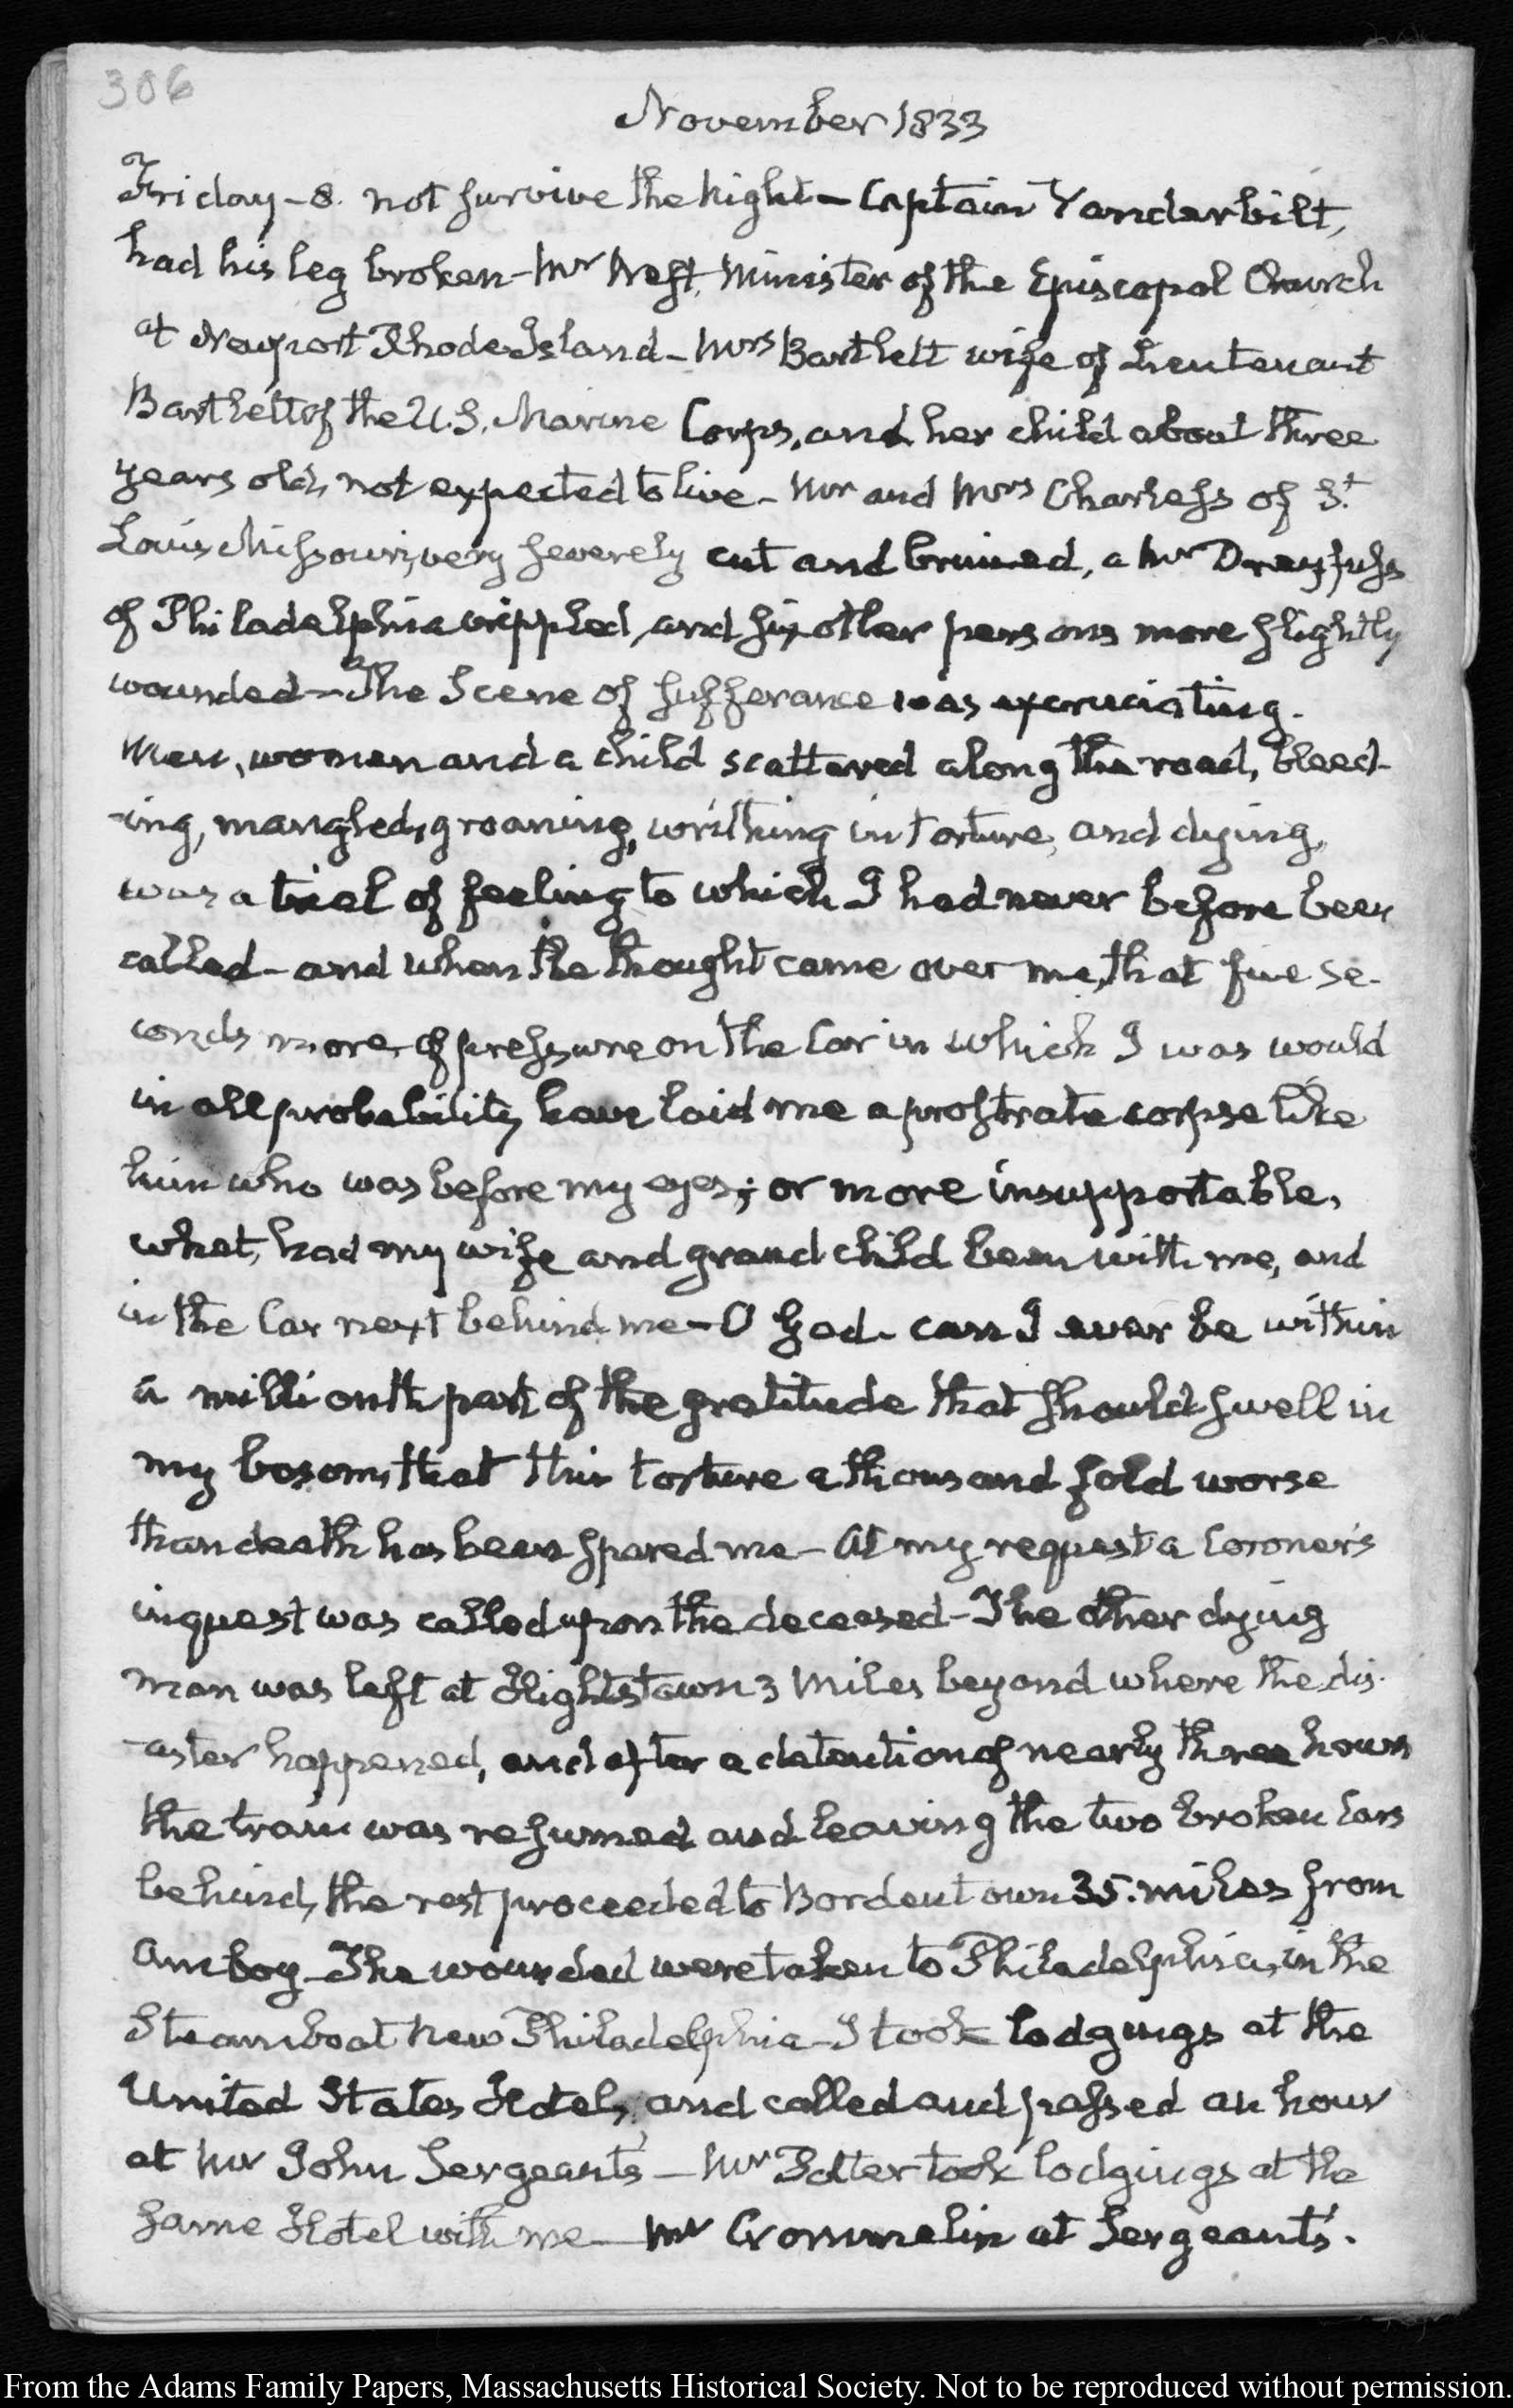 306
November 1833
Friday-8. not survive the night - Captain Vanderbilt,
had his leg broken - Mr West, Minister of the Episcopal Church
at Newport Rhode Island - Mrs Bartlett wife of Lieutenant
Bartlett of the U.S. Marine Corps, and her child about three
years old, not expected to live - Mr and Mrs Charless of St
Louis Missouri, very severely cut and bruised, a Mr Dreyfuss
of Philadelphia crippled, and six other persons more slightly
wounded - The Scene of sufferance was excruciating.
Men, women and a child scattered along the road, bleed-
-ing, mangled, groaning, writhing in torture, and dying,
was a trial of feeling to which I had never before been
called - and when the thought came over me, that five se-
conds more of pressure on the Car in which I was would
in all probability have laid me a prostrate corpse like
him who was before my eyes; or more insupportable,
what, had my wife and grandchild been with me, and
in the Car next behind me - O God. can I ever be within
a millionth part of the gratitude that should swell in
my bosom, that this torture a thousand fold worse
than death has been spared me - At my request a Coroner's
inquest was called upon the deceased - The other dying
man was left at Hightstown 3 Miles beyond where the dis-
-aster happened, and after a detention of nearly three hours
the train was resumed and leaving the two broken Cars
behind, the rest proceeded to Bordentown 35. miles from
Amboy - The wounded were taken to Philadelphia, in the
Steamboat New Philadelphia - I took lodgings at the
United States Hotel, and called and passed an hour
at Mr John Sergeant's - Mr Potter took lodgings at the
same Hotel with me - Mr Crommelin at Sergeant's.
From the Adams Family Papers, Massachusetts Historical Society. Not to be reproduced without permission.